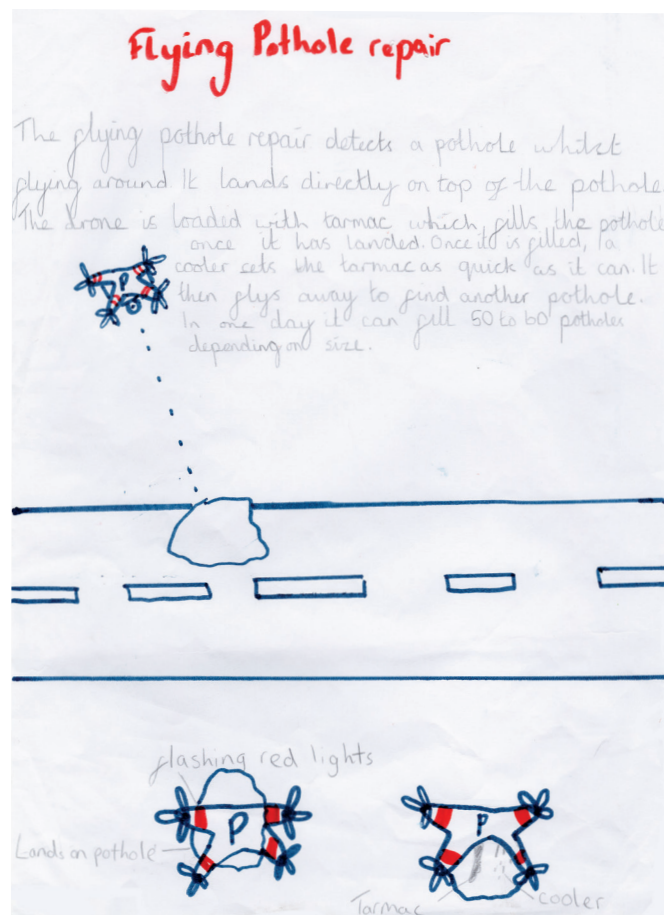 Flying Pothole repair
The flying pothole repair detects a pothole whilst
flying around. It lands directly on top of the pothole.
The drone is loaded with tarmac which fills the pothole
once it has landed. Once it is filled, a
cooler sets the tarmac as quick as it can. It
then flys away to find another pothole.
In one day it can fill 50 to 60 potholes
depending on size.
P
flashing red lights
P
Lands on pothole
P
Tarmac
cooler